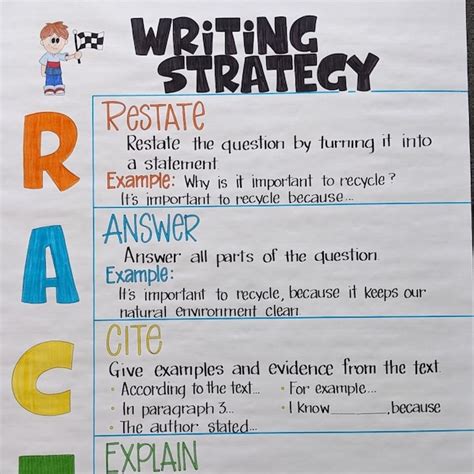 WRITING
STRATEGY
R
RESTATE
Restate the question by turning it into
a statement.
Example: Why is it important to recycle?
It's important to recycle because...
A
ANSWER
Answer all parts of the question.
Example:
It's important to recycle, because it keeps our
natural environment clean.
C
CITE
Give examples and evidence from the text.
• According to the text... • For example...
• In paragraph 3... • I know______, because
• The author stated...
EXPLAIN